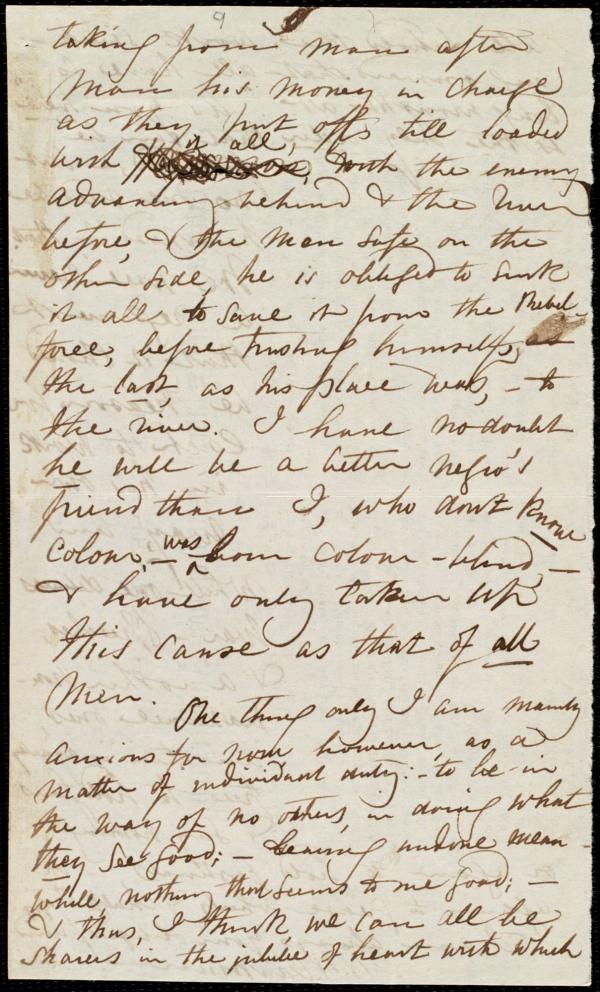 9
taking from man after
man his money in charge
as they put off, till loaded
with it all, with the enemy
advancing behind & the river
before, & the man safe on the
other side, he is obliged to sink
it all to save it from the Rebel
force, before trusting himself, as
the last, as his place was, - to
the river. I have no doubt
he will be a better negro's
friend than I, who don't know
colour, - was born colour-blind, -
& have only taken up
this cause as that of all
Men.
One thing only I am mainly
anxious for now however, as a
matter of individual duty: - to be in
the way of no others, in doing what
they see good; - leaving undone mean-
while nothing that seems to me good; -
& thus, I think, we can all be
sharers in the jubilee of heart with which